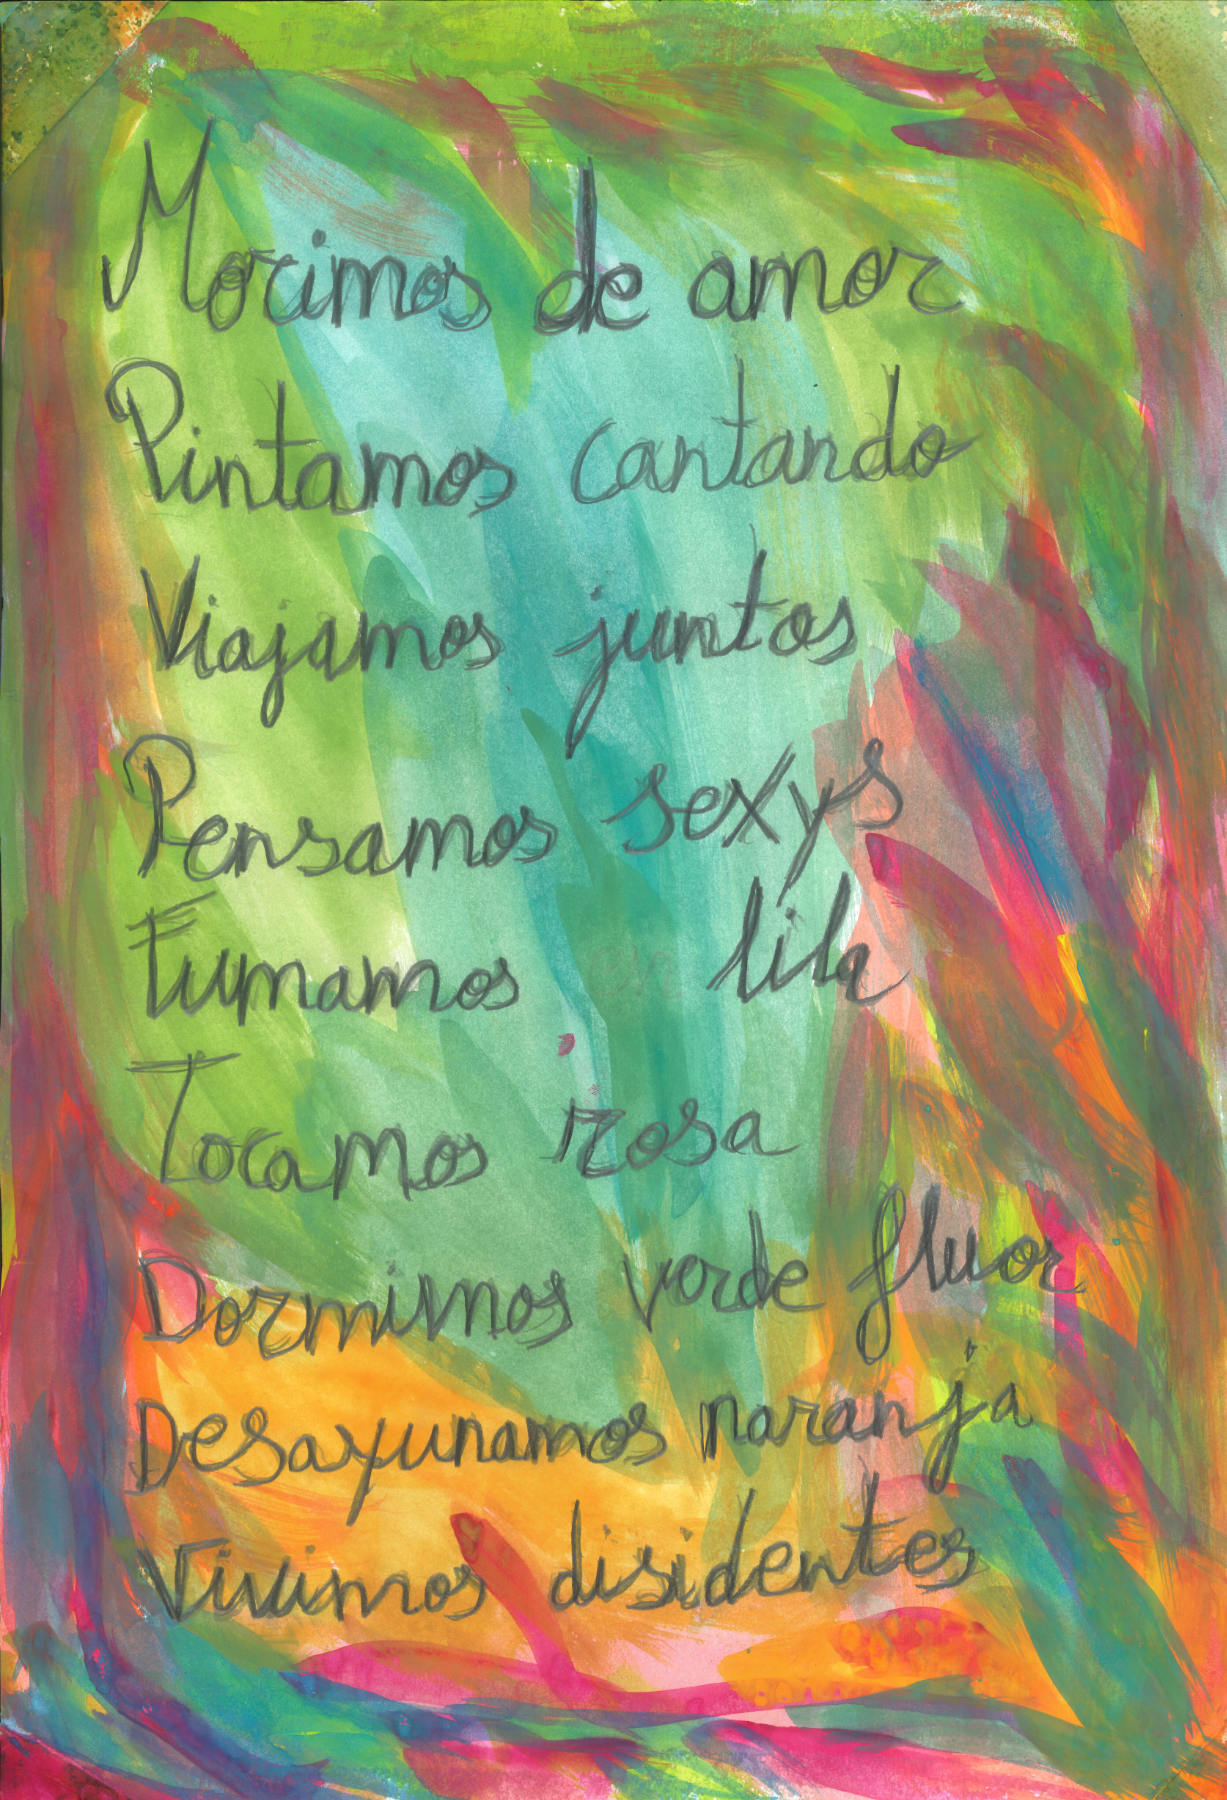 Morimos de amor
Pintamos cantando
Viajamos juntos
Pensamos sexys
Fumamos lila
Tocamos rosa
Dormimos verde fluor
Desayunamos naranja
Vivimos disidentes